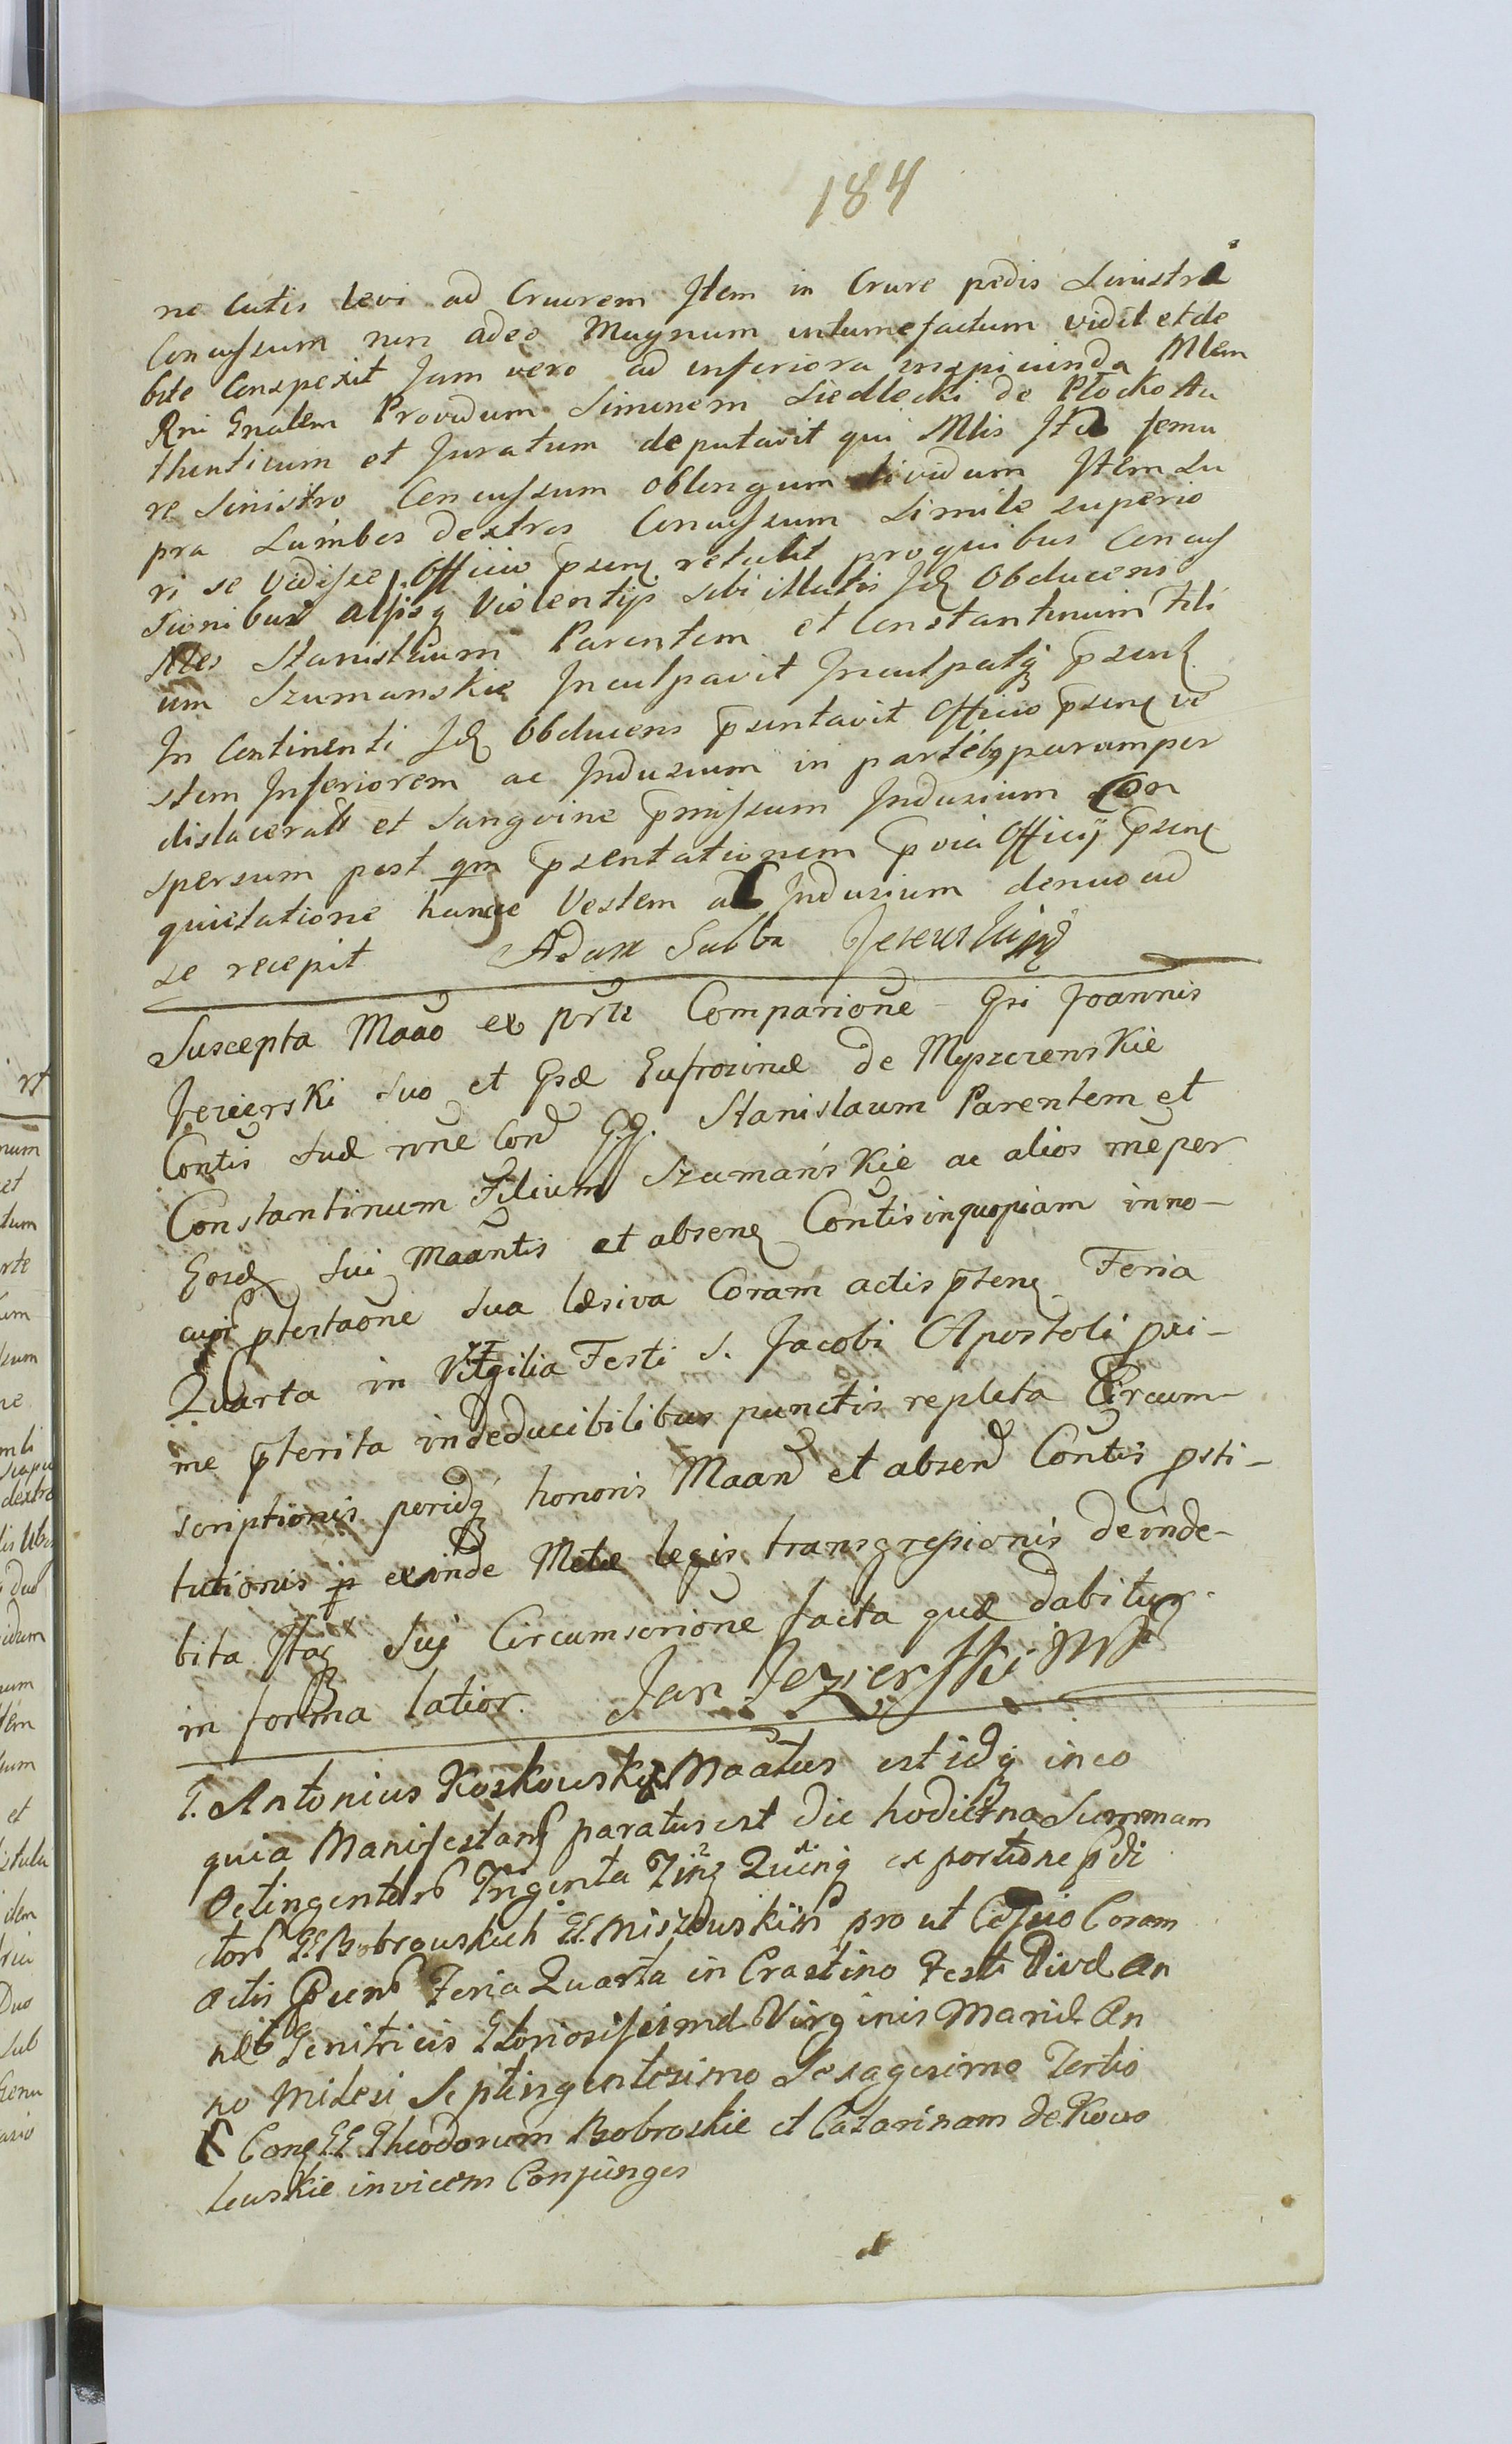 184
ne Cutis levi ad Cruorem Item in Crure pedis Sinistri
Concussum non adeo Magnum intumefactum vidit et de
bite Conspexit Jam vero ad inferiora inspicienda Mlem
Rni Gnalem Providum Simonem Siedlecki de Płocko Au
thenticum et Juratum deputavit qui Mlis Itd femo
re Sinistro Concussum Oblongum lividum Item Su
pra Lumbos dextros Concussum Simile superio
ri se vidisse Officio psenq retulit pro quibus Concus
sionibus aliisq Violentijs sibi illatis Idq Obducens
Nles Stanislaum Parentem et Constantinum Fili
um Szumanskie Inculpavit Inculpatq psenq
In Continenti Idq Obducens psentavit Officio psenq ve
stem Inferiorem ac Indusium in partibq parumper
dislaceratt et Sangvine pmissum Indusium Con
spersum post qm psentationem pvia Officij psenq
quietatione hancce Vestem ac Indusium denuo ad
se recepit Adam Sabba Jezierski mp
Suscepta Maão ex prte Comparione Gsi Joannis
Jezierski suo et Gsæ Eufrozinæ de Myszczenskie
Contis suæ nõne Con GG. Stanislaum Parentem et
Constantinum Filium Szumański̇e ac alios rñe per
Eosdq sui Maantis et absenq Contis in quopiam inno-
cupi ptestaone sua læsiva Coram actis pstenq Feria
Quarta in Vigilia Festi S. Jacobi Apostoli pxi-
me pterita indeducibilibus punctis repleta Circum-
scriptionis peridq honoris Maand et absend Contis psti-
tutionis p exinde Metæ legis transgressionis de inde-
bita Itaq Suj Circumscrione facta quæ dabitur
in forma latior. Jan Jezierski mp
G. Antonius Koskowski Maatus est idq in eo
quia Manifestans paratus est die hodierna Summam
Octingentor Triginta Quinq ex portione pdi
ctor GG Bobrowskich pro ut Cessio Coram
Actis psenb Feria Quarta in Crastino Festi Divæ An
næ Genitricis Gloriosissimæ Virginis Mariæ An
no Milesi Septingentesimo Sexagesimo Tertio
Conq GG Theodorum Bobroskie et Catarinam de Kowa
lewskie invicem Conjunges